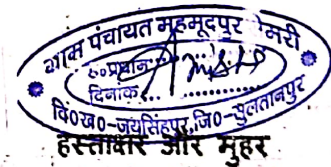 ग्राम पंचायत महमूदपुर सेमरी
ह०प्रधान
दिनांक
वि०ख०-जयसिंहपुर, जि०-सुलतानपुर
हस्ताक्षर और मुहर